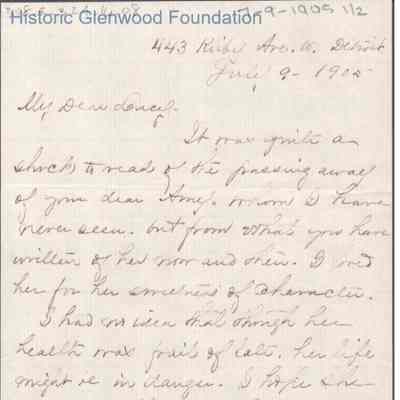 Historic Glenwood Foundation
7-9-1905 1/2
443 Kirby Ave. W. Detroit
July 9 - 1905
My Dear Lucy.
It was quite a
shock to read of the passing away
of your dear Amy. whom I have
never seen. but from what you have
written of her now and then. I
her for her sweetness of character.
I had no idea that though her
health was frail of late. her life
might be in danger. I hope she